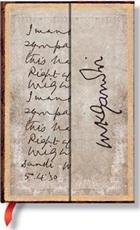 I wan
sympa
this ba
Right a
Might
I wan
sympa
this ba
Right a
Might
5.4.30
MKGandhi